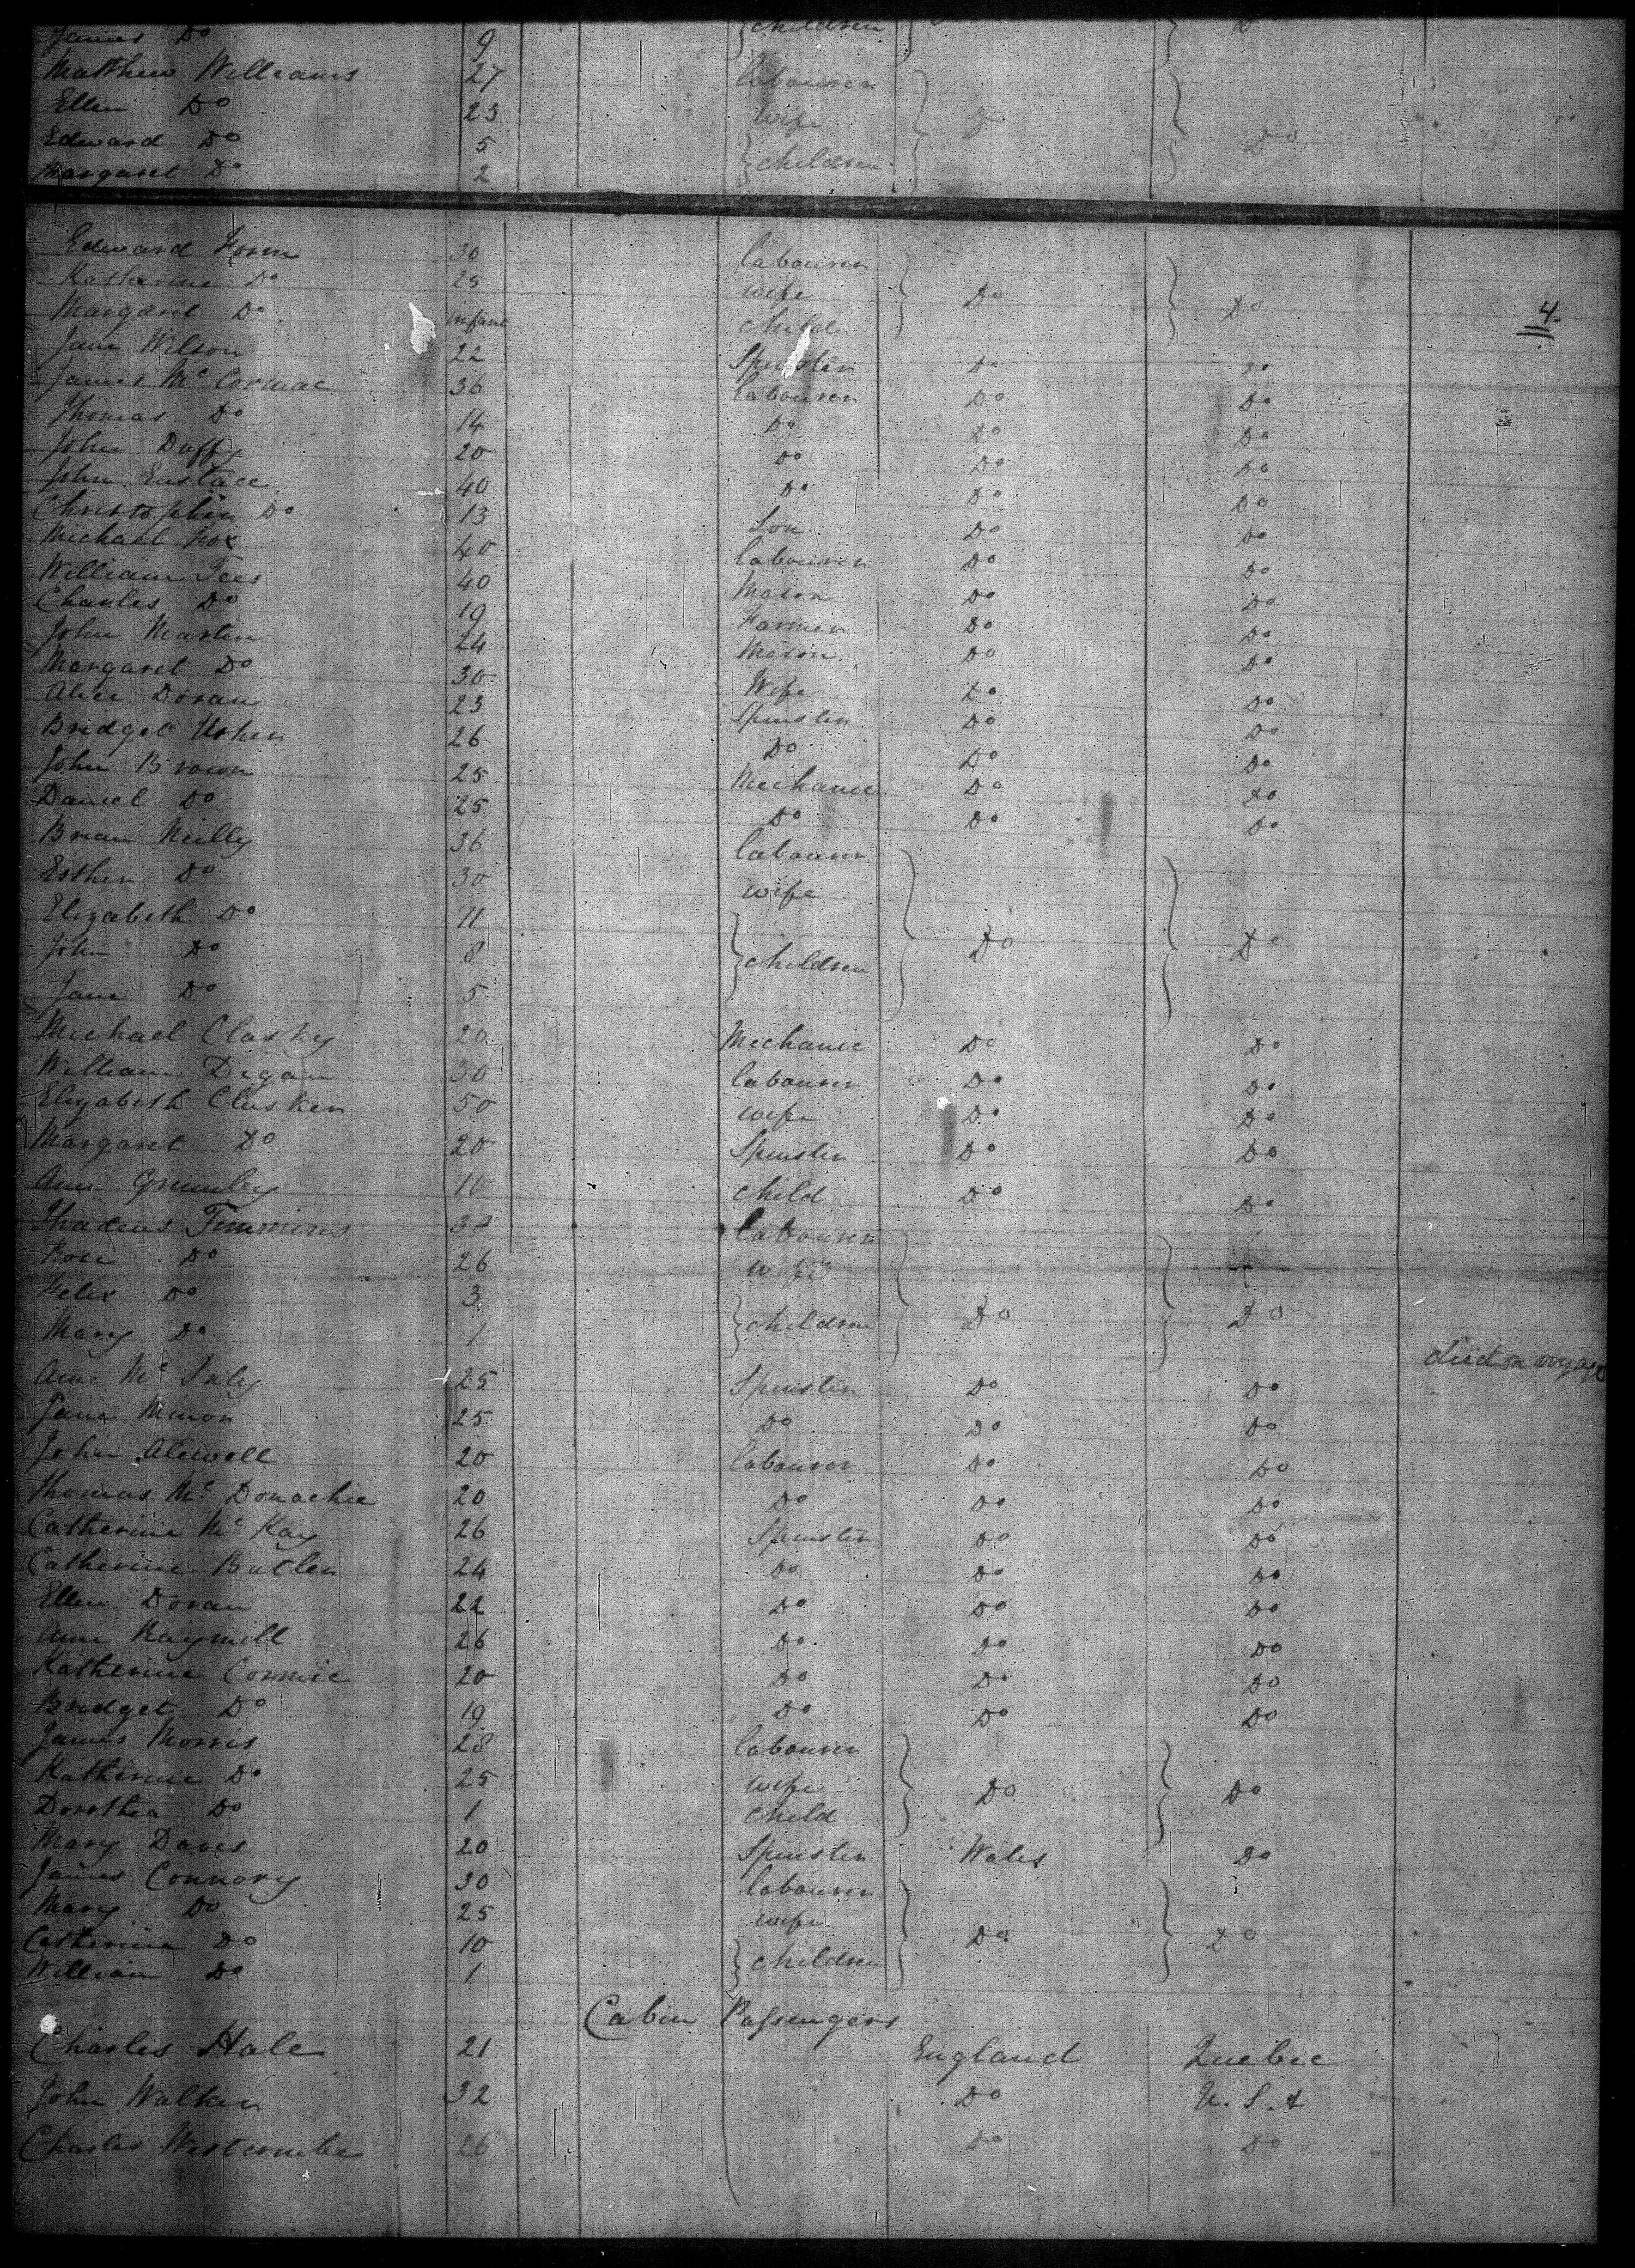 James Do 9 } children } Do
Matthew Williams 27 labourer
Ellen Do 23 wife Do
Edward Do 5 Do
Margaret Do 2 } children
Edward 30 labourer
Katherine Do 25 wife Do
Margaret Do infant child Do 4
Jane Wilson 22 Spinster Do Do
James Mc Cormac 36 labourer Do Do
Thomas Do 14 Do Do Do
John Duffy 20 Do Do Do
John Eustace 40 Do Do Do
Christopher Do 13 Son Do Do
Michael Fox 40 labourer Do Do
William Tees 40 Mason Do Do
Charles Do 19 Farmer Do Do
John Martin 24 Mason Do Do
Margaret Do 30 Wife Do Do
Alice Doran 23 Spinster Do Do
Bridget Usher 26 Do Do Do
John Brown 25 Mechanic Do Do
Daniel Do 25 Do Do Do
Brian Neilly 36 labourer
Esther Do 30 wife
Elizabeth Do 11
John Do 8 } children Do Do
Jane Do 5
Michael Clasky 20 Mechanic Do Do
William Digan 30 labourer Do Do
Elizabeth Clusker 50 wife Do Do
Margaret Do 20 Spinster Do Do
Ann Grumley 10 child Do Do
Thadeus Timmins 32 labourer
Rose Do 26 wife
Felix Do 3 } children Do Do
Mary Do 1 died on voyage
Ann Mc 25 Spinster Do Do
Jane Minor 25 Do Do Do
John Alewell 20 labourer Do Do
Thomas Mc Donachie 20 Do Do Do
Catherine Mc Kay 26 Spinster Do Do
Catherine Butler 24 Do Do Do
Ellen Doran 22 Do Do Do
Ann Raymill 26 Do Do Do
Katherine Cormic 20 Do Do Do
Bridget Do 19 Do Do Do
James Morris 28 labourer
Katherine Do 25 wife Do Do
Dorothea Do 1 child
Mary Daves 20 Spinster Wales Do
James Connory 30 labourer
Mary Do 25 wife Do Do
Catherine Do 10 } children
William Do 1
Cabin Passengers
Charles Hale 21 England Quebec
John Walker 32 Do U.S.A
Charles Westcombe 26 Do Do